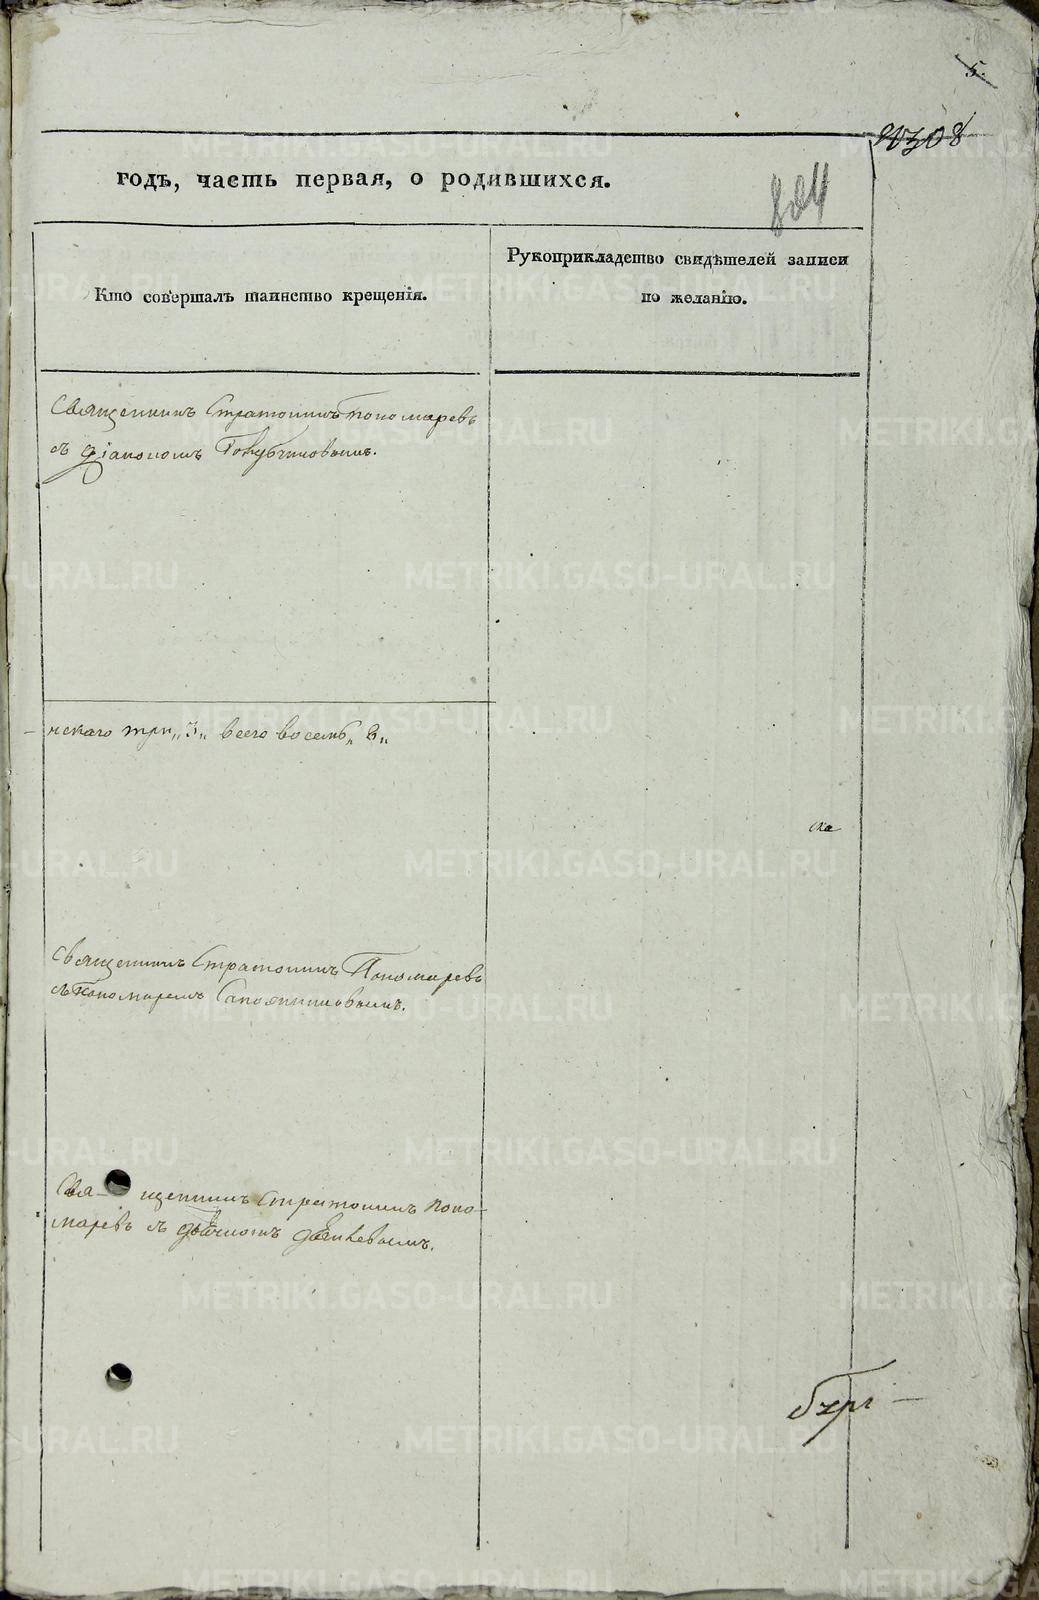 5.
804
годъ, часть первая, о родившихся.
Кто совершалъ таинство крещенія.
Рукоприкладство свидѣтелей записи
по желанію.
Священникъ Стратоникъ Пономаревъ
съ діакономъ
нскаго три „3„ всего восемь „8„
Священникъ Стратоникъ Пономаревъ
съ Пономаремъ
Свя- щенникъ Стратоникъ Поно-
маревъ съ дьячкомъ
METRIKI.GASO-URAL.RU